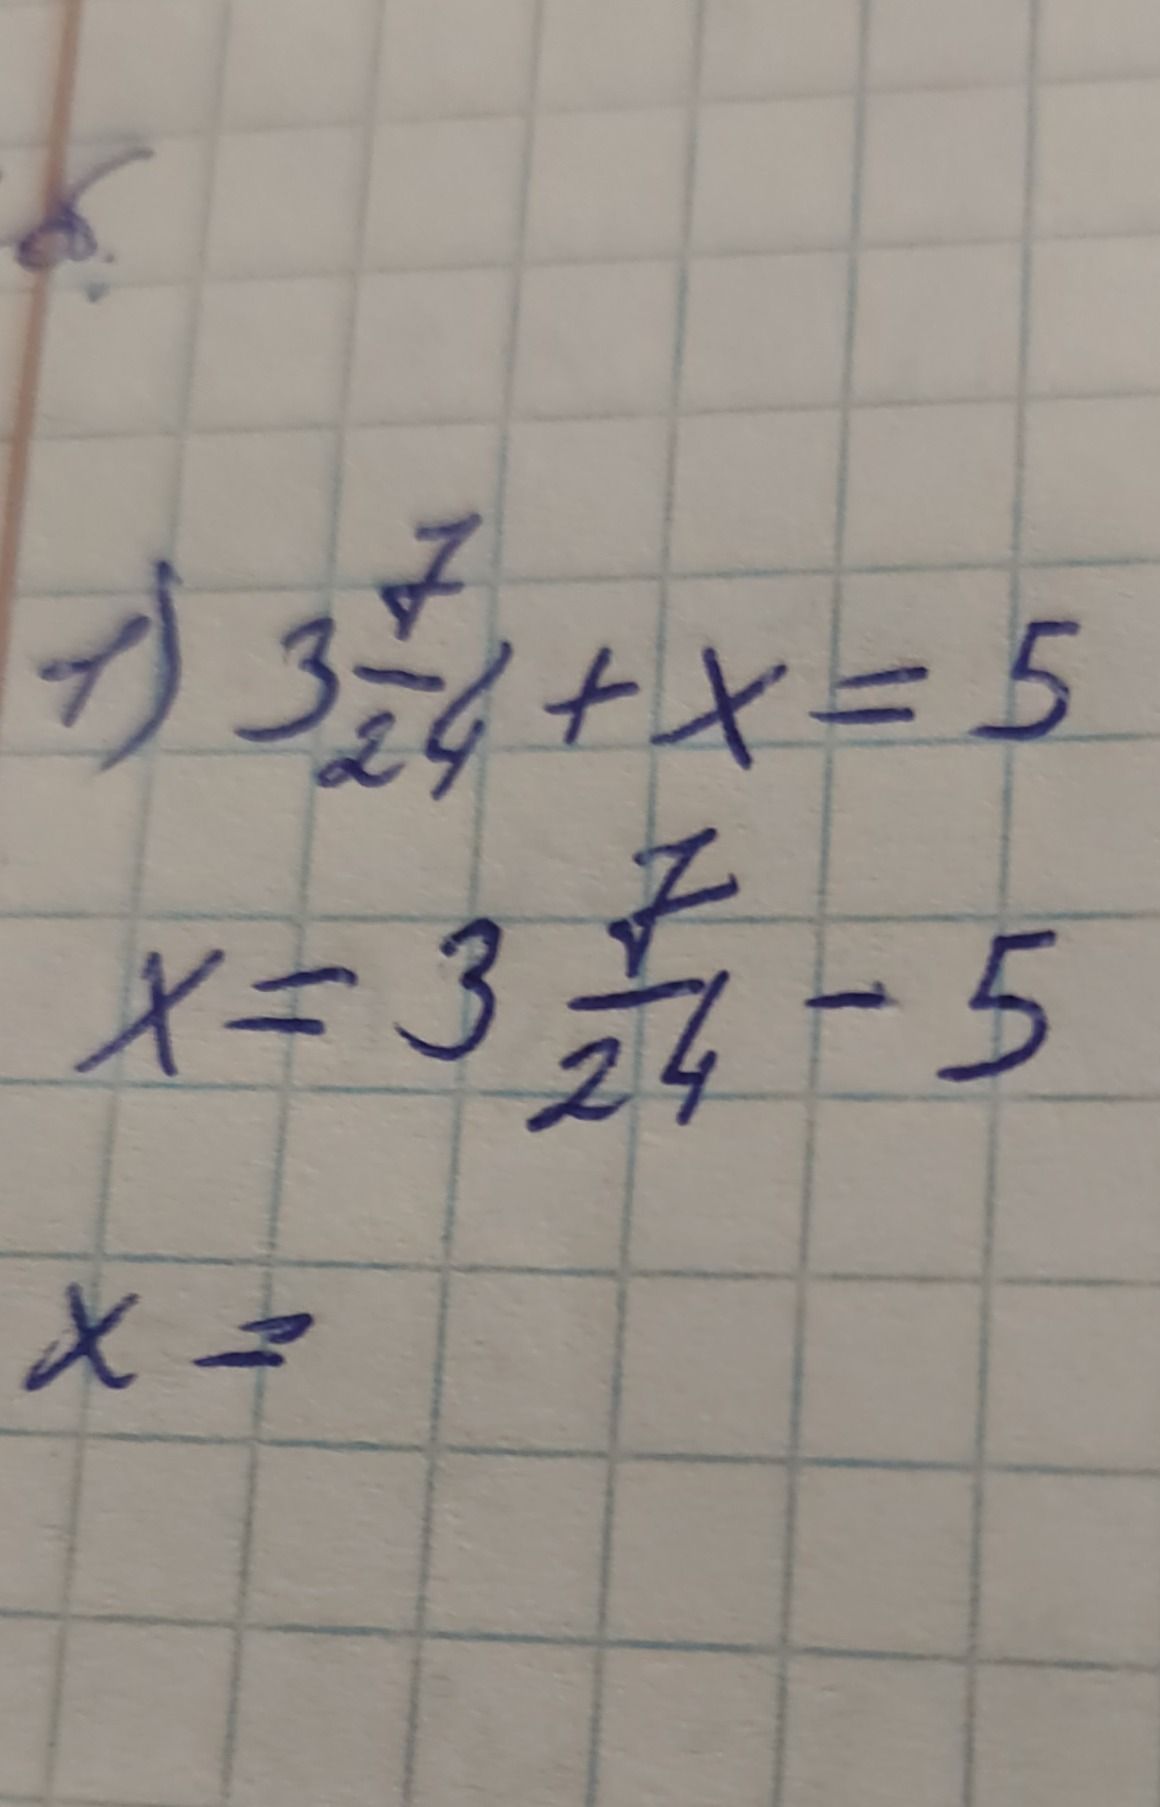 1) 3 7/24 + x = 5
x = 3 7/24 - 5
x =